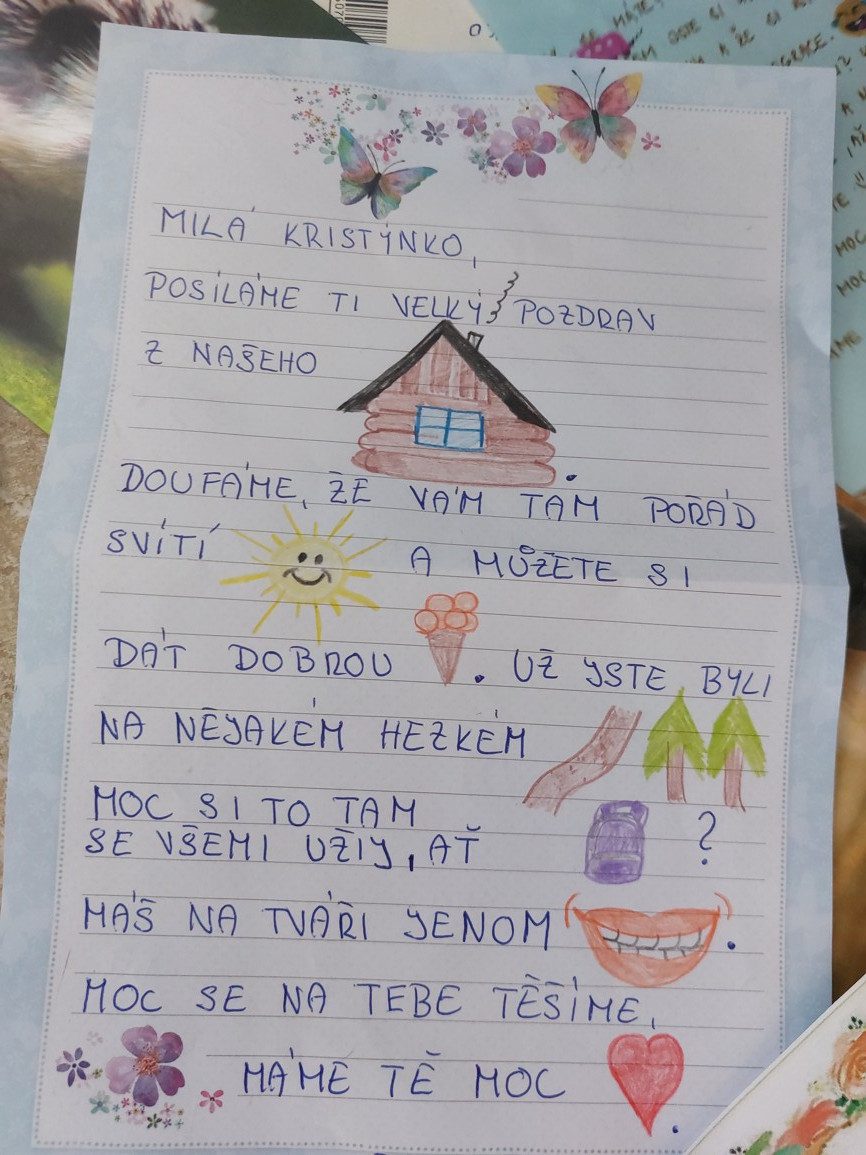 MILÁ KRISTÝNKO,
POSÍLÁME TI VELKÝ POZDRAV
Z NAŠEHO
DOUFÁME, ŽE VÁM TAM POŘÁD
SVÍTÍ A MŮŽETE SI
DÁT DOBROU . UŽ JSTE BYLI
NA NĚJAKÉM HEZKÉM
?
MOC SI TO TAM
SE VŠEMI UŽIJ, AŤ
MÁŠ NA TVÁŘI JENOM .
MOC SE NA TEBE TĚŠÍME,
MÁME TĚ MOC .